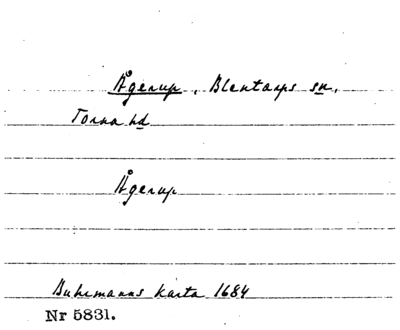 Ågerup, Blentarps sn,
Torna hd
Ågerup
Buhrmanns karta 1684
Nr 5831.